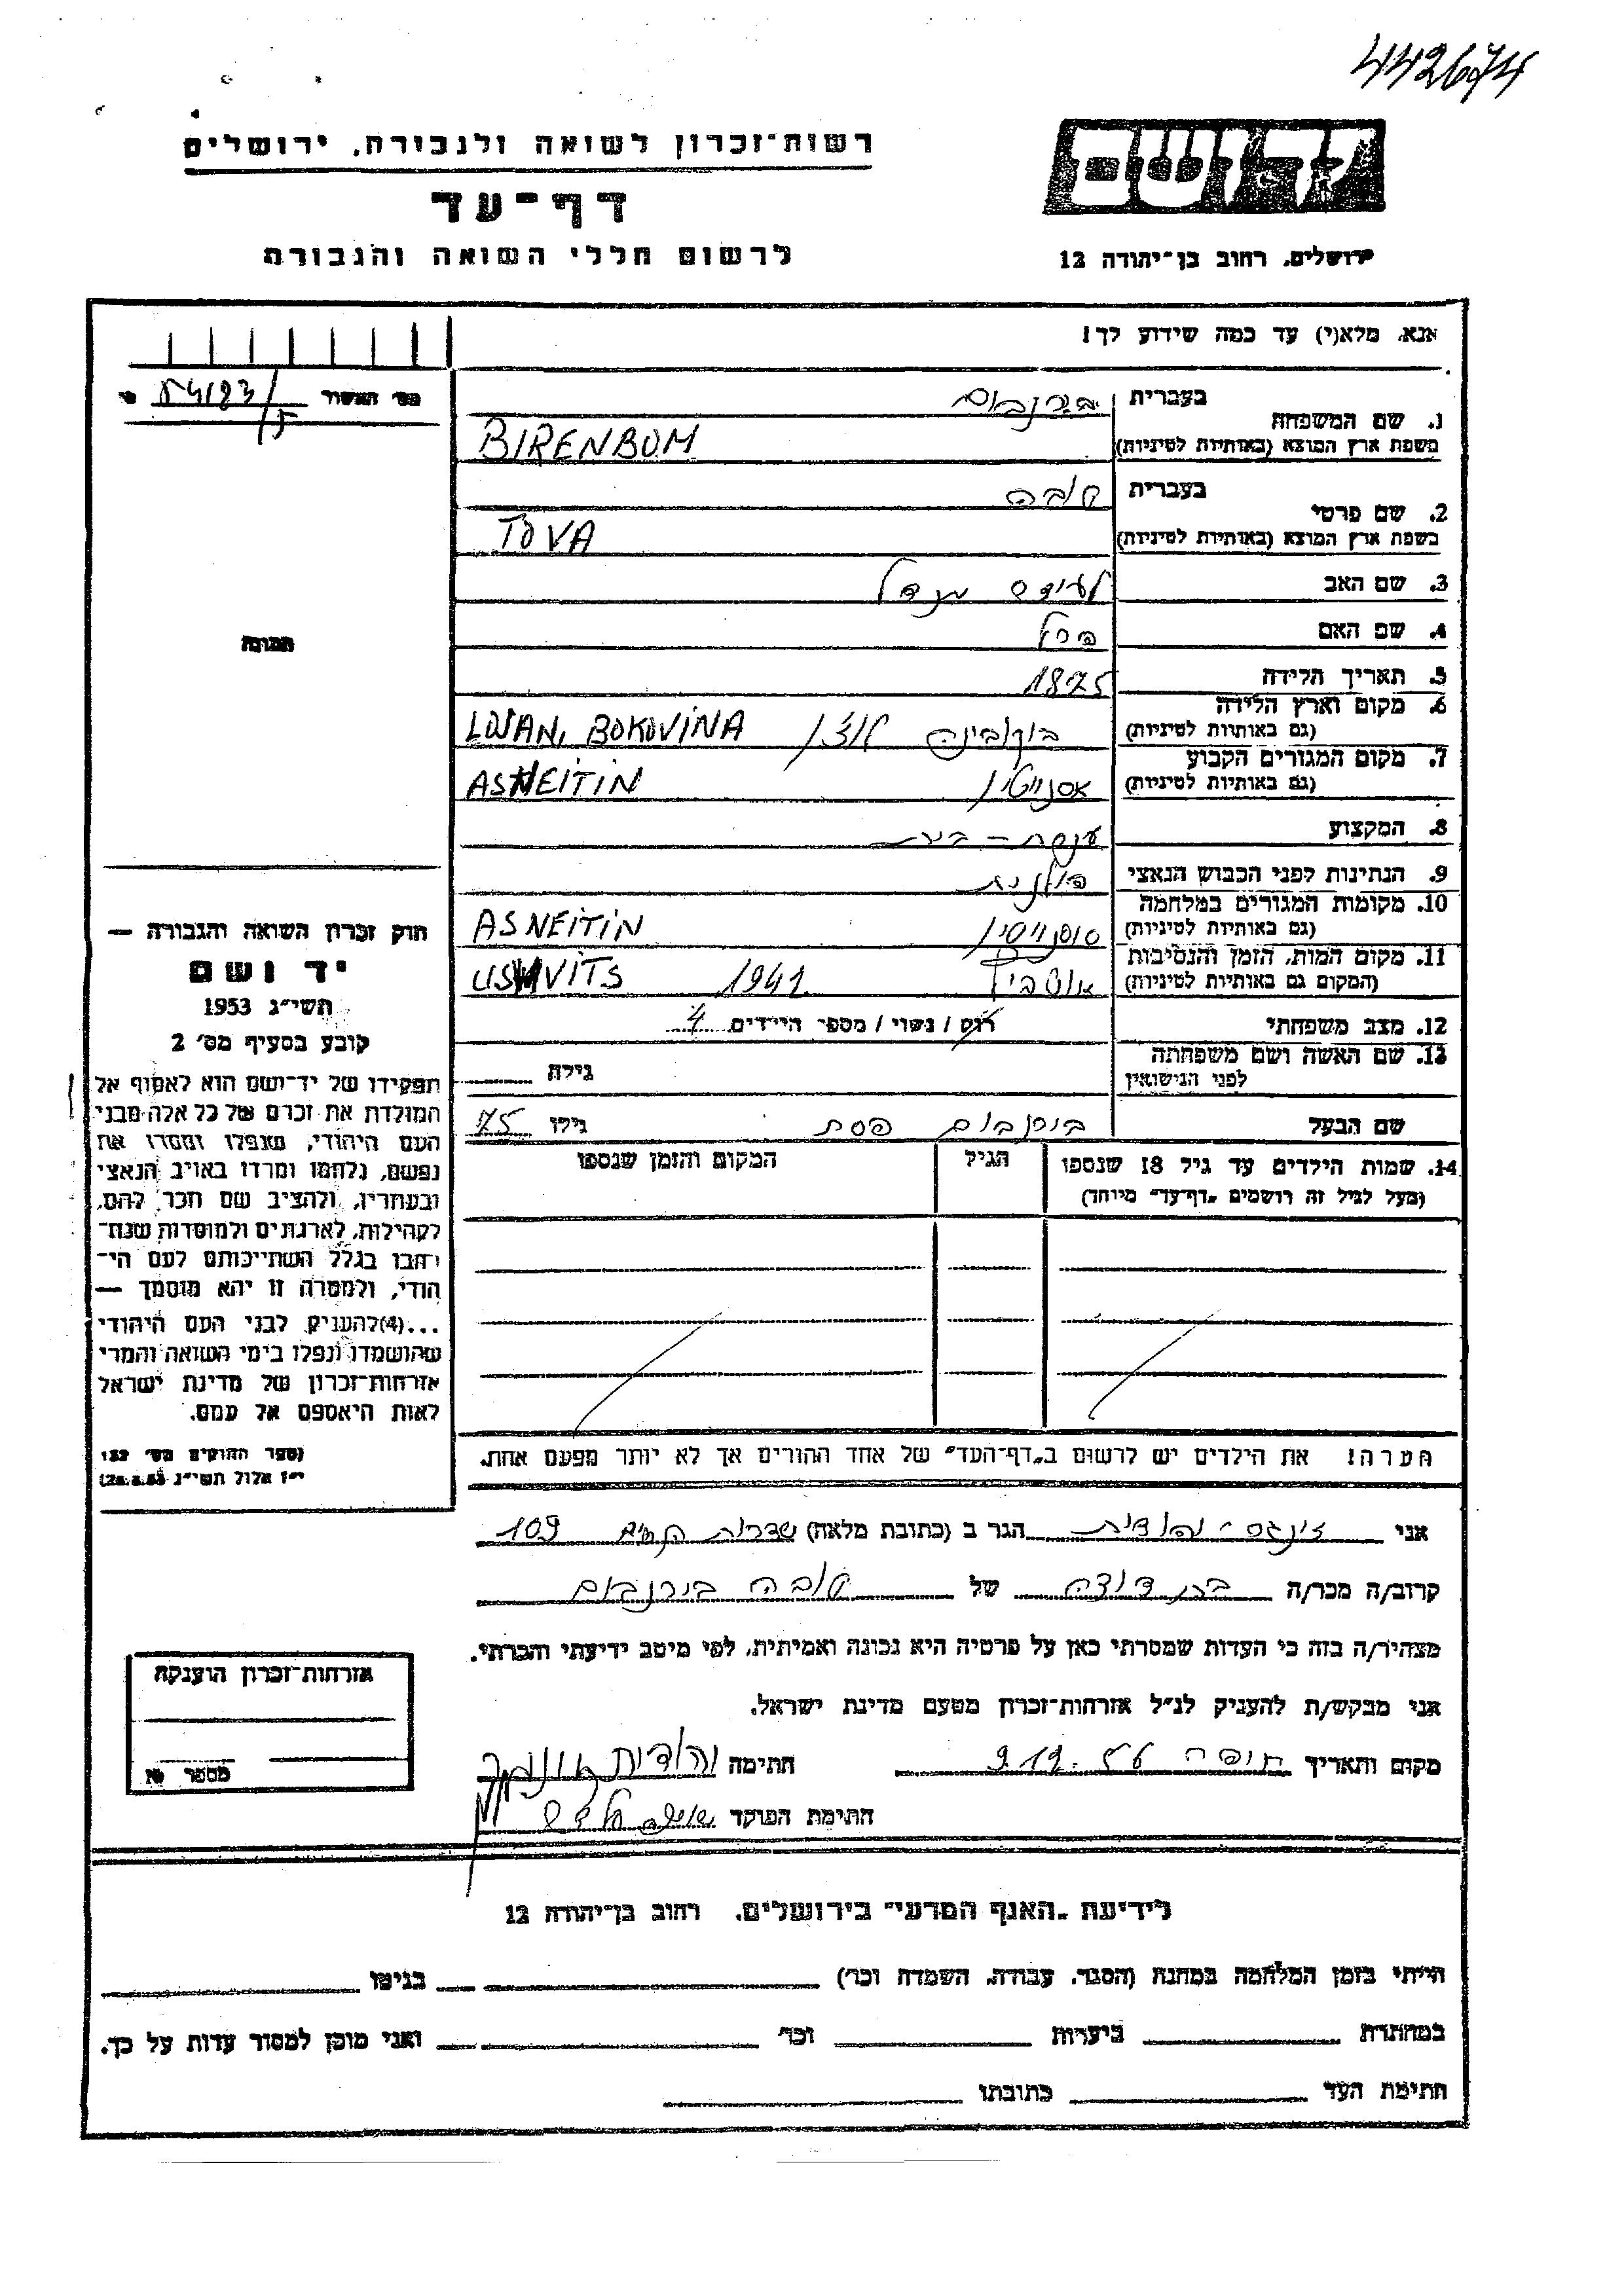 442674
רשות־זכרון לשואה ולגבורה, ירושלים
דף־עד
לרשום חללי השואה והגבורה
ירושלים, רחוב בן־יהודה 12
אנא, מלא(י) עד כמה שידוע לך!
1. שם המשפחה
בעברית בירנבוים
משפת ארץ המוצא (באותיות לטיניות) BIRENBOM
2. שם פרטי
בעברית טובה
בשפת ארץ המוצא (באותיות לטיניות) TOVA
3. שם האב מנדל
4. שם האם
5. תאריך הלידה 1875
6. מקום וארץ הלידה
(גם באותיות לטיניות) בוקובינה LUJAN, BOKOVINA
7. מקום המגורים הקבוע
(גם באותיות לטיניות) אסנייטין ASNEITIN
8. המקצוע עקרת-בית
9. הנתינות לפני הכבוש הנאצי פולנית
10. מקומות המגורים במלחמה
(גם באותיות לטיניות) ASNEITIN
11. מקום המות, הזמן והנסיבות
(המקום גם באותיות לטיניות) אושביץ 1941 USHVITS
12. מצב משפחתי רוק / נשוי / מספר הילדים 4
13. שם האשה ושם משפחתה
לפני הנישואין גילה
שם הבעל פסח גילו 75
14. שמות הילדים עד גיל 18 שנספו
(מעל לגיל זה רושמים „דף־עד" מיוחד)
הגיל
המקום והזמן שנספו
הערה! את הילדים יש לרשום ב„דף־העד" של אחד ההורים אך לא יותר מפעם אחת.
תמונה
חוק זכרון השואה והגבורה —
יד ושם
תשי״ג 1953
קובע בסעיף מס׳ 2
תפקידו של יד־ושם הוא לאסוף אל
המולדת את זכרם של כל אלה מבני
העם היהודי, שנפלו ומסרו את
נפשם, נלחמו ומרדו באויב הנאצי
ובעוזריו, ולהציב שם וזכר להם,
לקהילות, לארגונים ולמוסדות שנח־
רבו בגלל השתייכותם לעם הי־
הודי, ולמטרה זו יהא מוסמך —
...(4)להעניק לבני העם היהודי
שהושמדו ונפלו בימי השואה והמרי
אזרחות־זכרון של מדינת ישראל
לאות היאספם אל עמם.
(ספר החוקים מס׳ 132
י״ז אלול תשי״ג 28.8.53)
אני יהודית הגר ב (כתובת מלאה) שדרות 109
קרוב/ה מכר/ה בת דודה של טובה בירנבוים
מצהיר/ה בזה כי העדות שמסרתי כאן על פרטיה היא נכונה ואמיתית, לפי מיטב ידיעתי והכרתי.
אני מבקש/ת להעניק לנ״ל אזרחות־זכרון מטעם מדינת ישראל.
מקום ותאריך חיפה 9.12.56 חתימה יהודית
חתימת הפוקד
אזרחות־זכרון הוענקה
מספר №
לידיעת „האגף המדעי" בירושלים, רחוב בן־יהודה 12
הייתי בזמן המלחמה במחנה (הסגר, עבודה, השמדה וכו׳) בגיטו
במחתרת ביערות וכו׳ ואני מוכן למסור עדות על כך.
חתימת העד כתובתו